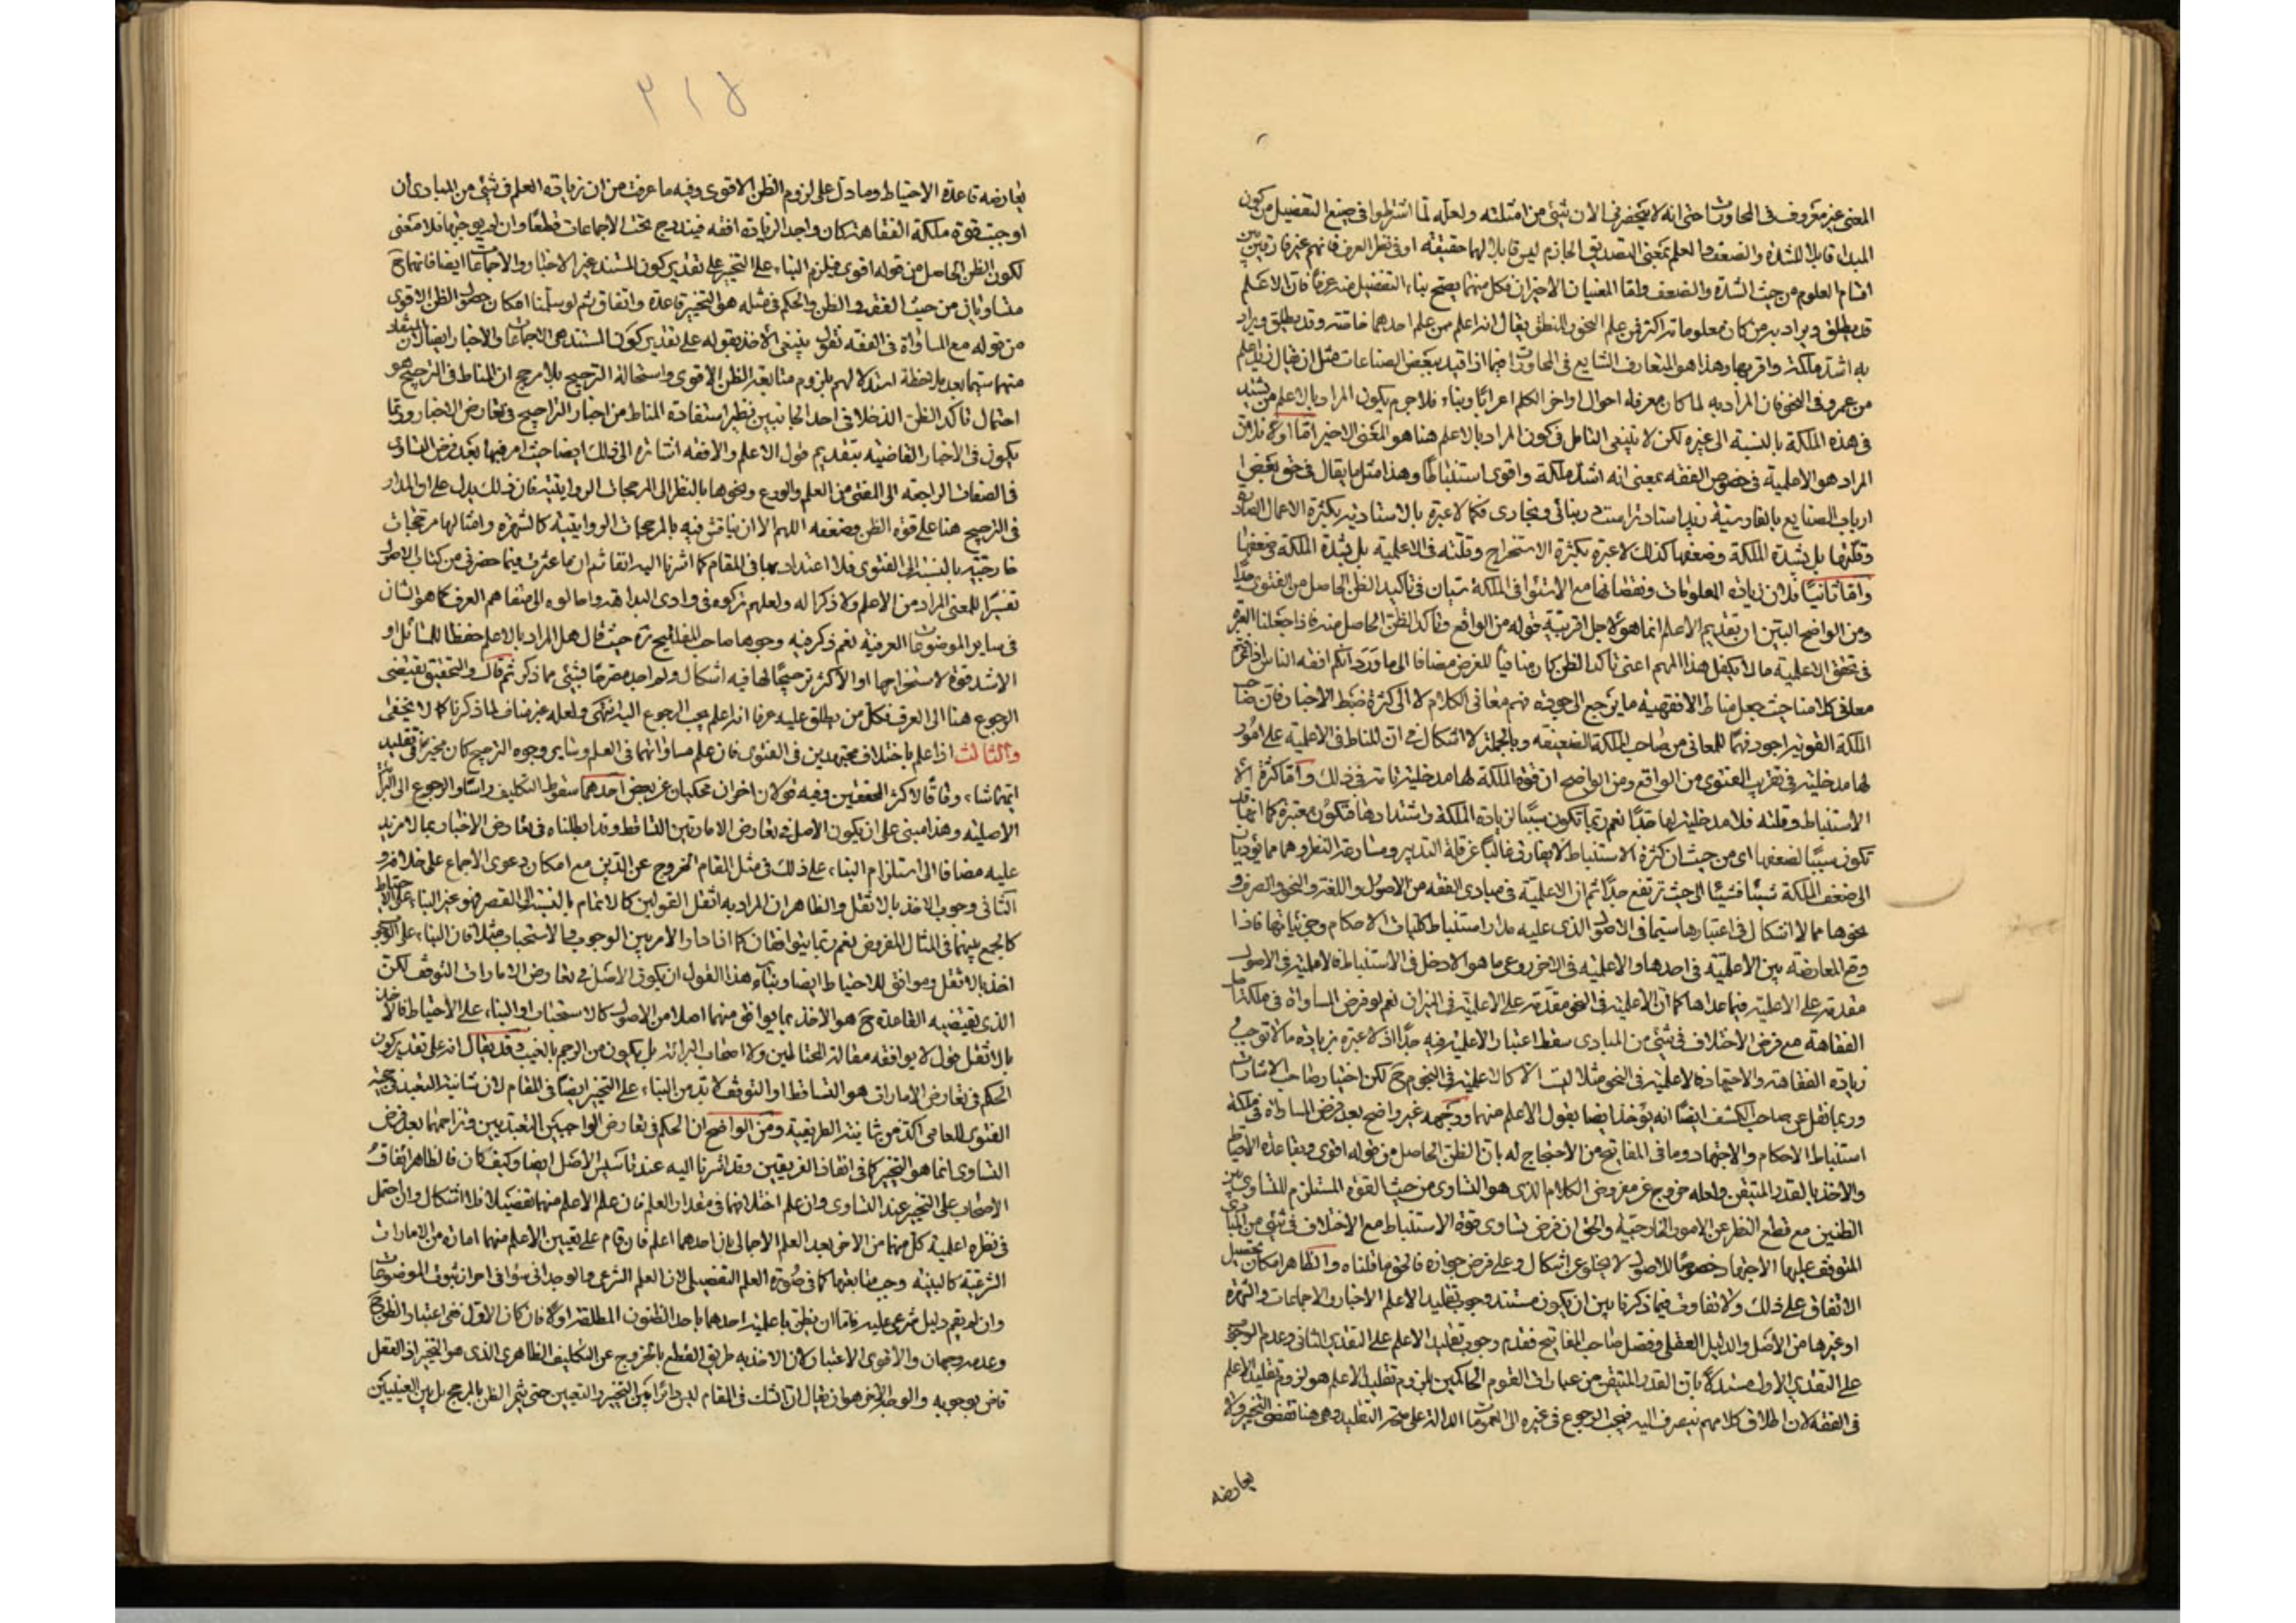 المعنى غير معروف في المحاورات حتى انه لا يحضرني الان شيئ من امثلته ولعله لما اشترطوا في صيغ التفضيل من كون
المبداء قابلا للشدة والضعف والعلم بمعنى التصديق الجازم ليس قابلا لهما حقيقة او في نظر العرف فانهم غير فارقين بين
اقسام العلوم من حيث الشدة والضعف واما المعنيان الاخيران فكل منهما يصح بناء التفضيل منه عرفا فان الاعلم
قد يطلق ويراد به من كان معلوماته اكثر فمن علم النحو والمنطق يقال انه اعلم ممن علم احدهما خاصة وقد يطلق ويراد
به اشد ملكة واقربها وهذا هو المتعارف الشايع في المحاورات فيما اذا قيد ببعض الصناعات مثل ان يقال زيد اعلم
من عمرو في النحو فان المراد به لما كان معرفة احوال اواخر الكلم اعرابا وبناء فلا جرم يكون المراد بالاعلم من يشتد
في هذه الملكة بالنسبة الى غيره لكن لا ينبغي التامل في كون المراد بالاعلم هنا هو المعنى الاخير اما اولا فلان
المراد هو الاعلمية في خصوص الفقه بمعنى انه اشد ملكة واقوى استنباطا وهذا مثل ما يقال في حق بعض
ارباب الصنايع بالفارسية زيد استاد تر است در بنائي ونجاري فكما لا عبرة بالاستادية بكثرة الاعمال الصادرة
وقلتها بل بشدة الملكة وضعفها كذلك لا عبرة بكثرة الاستخراج وقلته في الاعلمية بل بشدة الملكة وضعفها
واما ثانيا فلان زيادة المعلومات ونقصانها مع الاستواء في الملكة سيان في تاكيد الظن الحاصل من الفتوى جدا
ومن الواضح البين ان تقديم الاعلم انما هو لاجل اقربية قوله من الواقع وتاكد الظن الحاصل منه فاذا جعلنا العبرة
في تحقق الاعلمية ما لا يكفل هذا المهم اعني تاكد الظن كان منافيا للغرض مضافا الى ما ورد انكم افقه الناس اذا عرفتم
معاني كلامنا حيث جعل مناط الافقهية ما يرجع الى جودة فهم معاني الكلام لا الى كثرة ضبط الاخبار فان صاحب
الملكة القوية اجود فهما للمعاني من صاحب الملكة الضعيفة وبالجملة لا اشكال في ان المناط في الاعلمية على امور
لها مدخلية في تقريب الفتوى من الواقع ومن الواضح ان قوة الملكة لها مدخلية تامة في ذلك واما كثرة
الاستنباط وقلته فلا مدخلية لها جدا نعم ربما تكون سببا لزيادة الملكة واشتدادها فتكون معتبرة كما انها قد
تكون سببا لضعفها اي من حيث ان كثرة الاستنباط لا يفارق غالبا عن قلة التدبر ومسارعة النظر وهما مما يؤديان
الى ضعف الملكة شيئا فشيئا الى حيث ترتفع جدا ثم ان الاعلمية في مبادي الفقه من الاصول واللغة والنحو والصرف و
نحوها مما لا اشكال في اعتبارها سيما في الاصول الذي عليه مدار استنباط كليات الاحكام وجزئياتها فاذا
وقع المعارضة بين الاعلمية في احدها والاعلمية في الاخر روعي ما هو الادخل في الاستنباط فالاعلمية في الاصول
مقدمة على الاعلمية فيما عداها كما ان الاعلمية في النحو مقدمة على الاعلمية في الميزان نعم لو فرض المساواة في ملكة
الفقاهة مع فرض الاختلاف في شيئ من المبادي سقط اعتبار الاعلمية فيه جدا اذ لا عبرة بزيادة ما لا توجب
زيادة الفقاهة والاجتهاد فالاعلمية في النحو مثلا ليست الا كالاعلمية في النجوم ح لكن اختيار صاحب الاشارات
وربما نقل عن صاحب الكشف ايضا انه يؤخذ ايضا بقول الاعلم منهما ووجهه غير واضح بعد فرض المساواة في ملكة
استنباط الاحكام والاجتهاد وما في المفاتيح من الاحتجاج له بان الظن الحاصل من قوله اقوى وبقاعدة الاحتياط
والاخذ بالقدر المتيقن ولعله خروج عن مفروض الكلام الذي هو التساوي من حيث القوة المستلزم للتساوي بين
الظنين مع قطع النظر عن الامور الخارجية والحق ان فرض تساوي قوة الاستنباط مع الاختلاف في شيئ من المبادي
المتوقف عليها الاجتهاد خصوصا الاصول لا يخلو عن اشكال وعلى فرض جوازه فالحق ما قلناه والظاهر امكان تحصيل
الاتفاق على ذلك ولا تفاوت فيما ذكرنا بين ان يكون مستند وجوب تقليد الاعلم الاخبار والاجماعات والشهرة
او غيرها من الاصل والدليل العقلي وفصل صاحب المفاتيح فقدم وجوب تقليد الاعلم على التقدير الثاني وعدم الوجوب
على التقدير الاول مستدلا بان القدر المتيقن من عبارات القوم الحاكمين بلزوم تقليد الاعلم هو لزوم تقليد الاعلم
في الفقه لان اطلاق كلامهم ينصرف اليه فيجب الرجوع في غيره الى العمومات الدالة على صحة التقليد وهي هنا تقتضي التخيير ولا
يعارضه
٣١٨
يعارضه قاعدة الاحتياط وما دل على لزوم الظن الاقوى وفيه ما عرفت من ان زيادة العلم في شيئ من المبادي ان
اوجبت قوة ملكة الفقاهة كان واجد الزيادة افقه فيندرج تحت الاجماعات قطعا وان لم يوجبها فلا معنى
لكون الظن الحاصل من قوله اقوى فيلزم البناء على التخيير على تقدير كون المستند غير الاخبار والاجماعات ايضا فانهما ح
متساويان من حيث الفقه والظن والحكم في مثله هو التخيير قاعدة واتفاق ثم لو سلمنا امكان حصول الظن الاقوى
من قوله مع المساواة في الفقه نقول ينبغي الاخذ بقوله على تقدير كون المستند هي الاجماعات والاخبار ايضا لان المستفاد
منهما سيما بعد ملاحظة استدلالهم بلزوم متابعة الظن الاقوى واستحالة الترجيح بلا مرجح ان المناط في الترجيح هو
احتمال تاكد الظن الداخلا في احد الجانبين نظير استفادة المناط من اخبار التراجيح في تعارض الاخبار وربما
يكون في الاخبار القاضية بتقديم قول الاعلم والافقه اشارة الى ذلك ايضا حيث امر فيها بعد فرض التساوي
في الصفات الراجعة الى المفتي من العلم والورع ونحوها بالنظر الى المرجحات الروايتية فان ذلك يدل على ان المدار
في الترجيح هنا على قوة الظن وضعفه اللهم الا ان يناقش فيه بالمرجحات الروايتية كالشهرة وامثالها مرجحات
خارجية بالنسبة الى الفتوى فلا اعتداد بها في المقام كما اشرنا اليه انفا ثم ان ما عثرت فيما حضرني من كتاب الاصول
تفسيرا للمعنى المراد من الاعلم ولا ذكرا له ولعلهم تركوه في وادي البداهة واحالوه الى متفاهم العرف كما هو الشان
في ساير الموضوعات العرفية نعم ذكر فيه وجوها صاحب المفاتيح ره حيث قال هل المراد بالاعلم حفظا للمسائل او
الاشد قوة لاستخراجها او الاكثر ترجيحا لها فيه اشكال ولم اجد مصرحا بشيئ مما ذكر ثم قال والتحقيق يقتضي
الرجوع هنا الى العرف فكل من يطلق عليه عرفا انه اعلم يجب الرجوع اليه انتهى ولعله غير مناف لما ذكرنا كما لا يخفى
والثالث اذا علم باختلاف مجتهدين في الفتوى فان علم مساواتهما في العلم وساير وجوه الترجيح كان مخيرا في تقليد
ايهما شاء وفاقا لاكثر المحققين وفيه قولان اخران محكيان عن بعض احدهما سقوط التكليف راسا والرجوع الى البرائة
الاصلية وهذا مبني على ان يكون الاصل في تعارض الامارتين التساقط وقد ابطلناه في تعارض الاخبار بما لا مزيد
عليه مضافا الى استلزام البناء على ذلك في مثل المقام الخروج عن الدين مع امكان دعوى الاجماع على خلافه و
الثاني وجوب الاخذ بالاثقل والظاهر ان المراد به اثقل القولين كالاتمام بالنسبة الى القصر فهو غير البناء على الاحتياط
كالجمع بينهما في المثال المفروض نعم ربما يتوافقان كما اذا دار الامر بين الوجوب والاستحباب مثلا فان البناء على الوجوب
اخذ بالاثقل وموافق للاحتياط ايضا وبناء هذا القول ان يكون الاصل في تعارض الامارات التوقف لكن
الذي يقتضيه القاعدة ح هو الاخذ بما يوافق منهما اصلا من الاصول كالاستصحاب او البناء على الاحتياط فالاخذ
بالاثقل قول لا يوافقه مقالة المحتاطين ولا اصحاب البرائة بل يكون من الرجم بالغيب وقد يقال انه على تقدير كون
الحكم في تعارض الامارات هو التساقط او التوقف لا بد من البناء على التخيير ايضا في المقام لان شانية التعبد في حجية
الفتوى للعامي اكد من شانية الطريقية ومن الواضح ان الحكم في تعارض الواجبين التعبديين وتزاحمهما بعد فرض
التساوي انما هو التخيير كما في انقاذ الغريقين وقد اشرنا اليه عند تاسيس الاصل ايضا وكيف كان فالظاهر اتفاق
الاصحاب على التخيير عند التساوي وان علم اختلافهما في مقدار العلم فان علم الاعلم منهما تفصيلا فلا اشكال وان احتمل
في نظره اعلمية كل منهما من الاخر بعد العلم الاجمالي بان احدهما اعلم فان قام على تعيين الاعلم منهما امارة من الامارات
الشرعية كالبينة وجب متابعتها كما في صورة العلم التفصيلي لان العلم الشرعي والوجداني سواء في احراز ثبوت الموضوعات
وان لم يقم دليل شرعي عليه فاما ان يظن باعلمية احدهما باحد الظنون المطلقة اولا فان كان الاول ففي اعتبار الظن ح
وعدمه وجهان والاقوى الاعتبار لان الاخذ به طريق القطع بالخروج عن التكليف الظاهري الذي هو التخيير اذ العقل
قاض بوجوبه والوجه الاخر هو ان يقال ان الشك في المقام ليس دائرا بين التخيير والتعيين حتى يثمر الظن بالمرجح بل بين العينيين